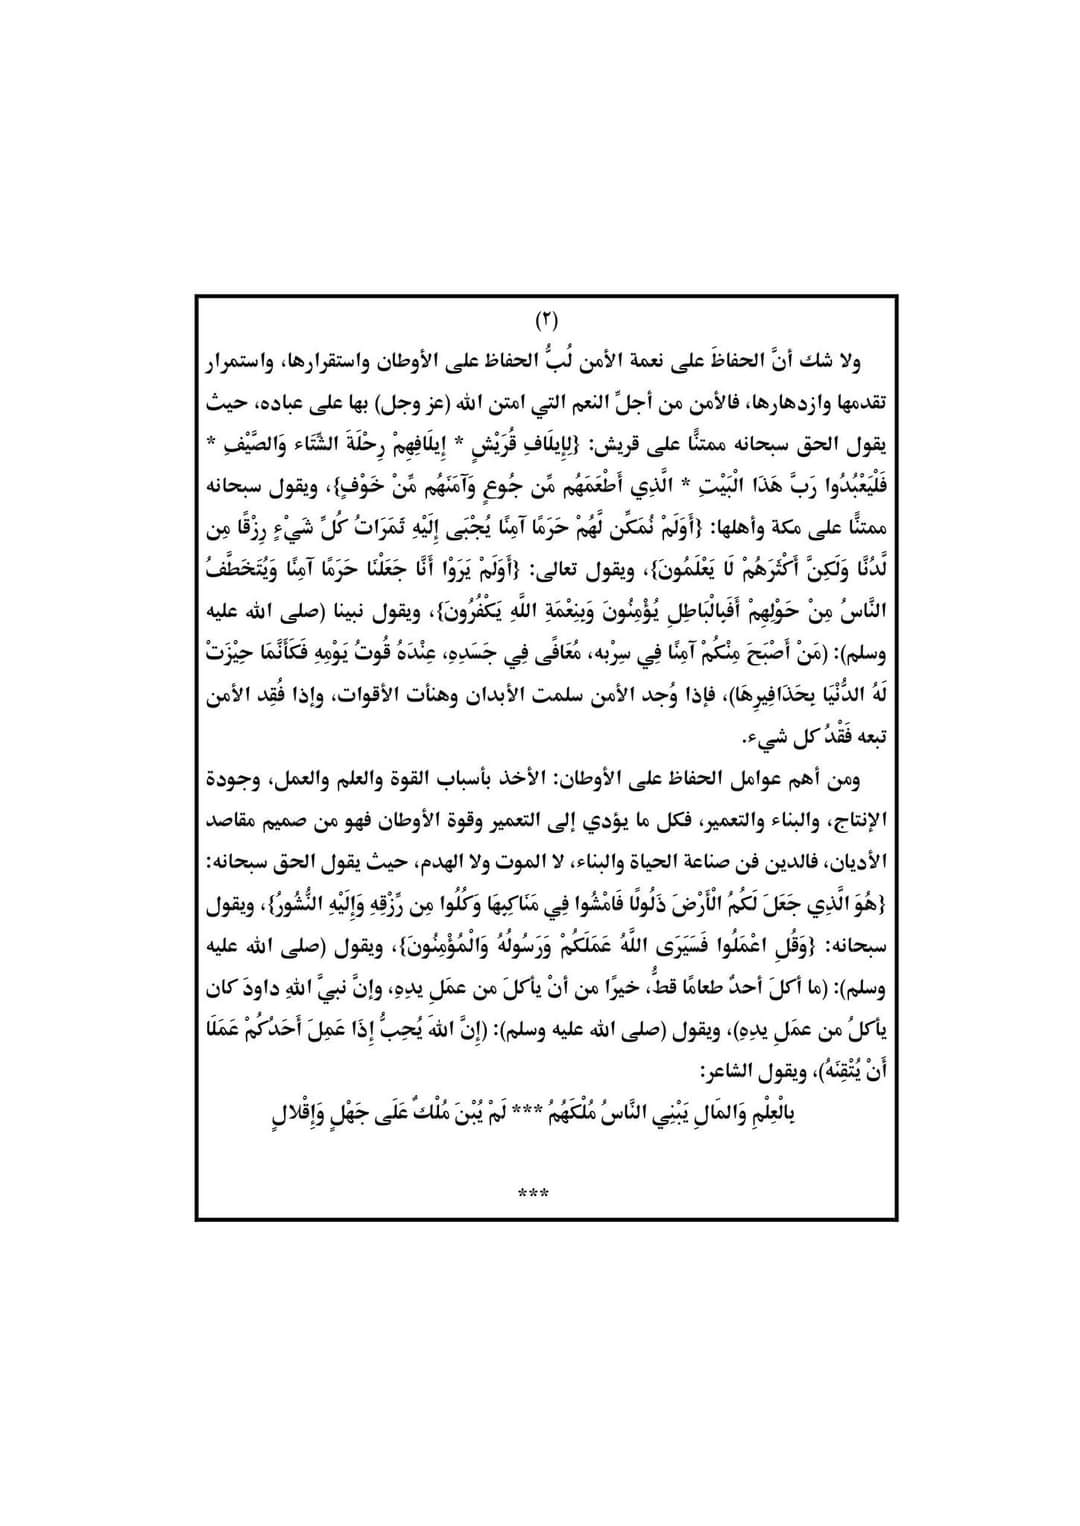 (٢)
ولا شك أنَّ الحفاظَ على نعمة الأمن لُبُّ الحفاظ على الأوطان واستقرارها، واستمرار
تقدمها وازدهارها، فالأمن من أجلِّ النعم التي امتن الله (عز وجل) بها على عباده، حيث
يقول الحق سبحانه ممتنًّا على قريش: {لِإِيلَافِ قُرَيْشٍ * إِيلَافِهِمْ رِحْلَةَ الشِّتَاء وَالصَّيْفِ *
فَلْيَعْبُدُوا رَبَّ هَذَا الْبَيْتِ * الَّذِي أَطْعَمَهُم مِّن جُوعٍ وَآمَنَهُم مِّنْ خَوْفٍ}، ويقول سبحانه
ممتنًّا على مكة وأهلها: {أَوَلَمْ نُمَكِّن لَّهُمْ حَرَمًا آمِنًا يُجْبَى إِلَيْهِ ثَمَرَاتُ كُلِّ شَيْءٍ رِزْقًا مِن
لَّدُنَّا وَلَكِنَّ أَكْثَرَهُمْ لَا يَعْلَمُونَ}، ويقول تعالى: {أَوَلَمْ يَرَوْا أَنَّا جَعَلْنَا حَرَمًا آمِنًا وَيُتَخَطَّفُ
النَّاسُ مِنْ حَوْلِهِمْ أَفَبِالْبَاطِلِ يُؤْمِنُونَ وَبِنِعْمَةِ اللَّهِ يَكْفُرُونَ}، ويقول نبينا (صلى الله عليه
وسلم): (مَنْ أَصْبَحَ مِنْكُمْ آمِنًا فِي سِرْبِه، مُعَافًى فِي جَسَدِهِ، عِنْدَهُ قُوتُ يَوْمِهِ فَكَأَنَّمَا حِيْزَتْ
لَهُ الدُّنْيَا بِحَذَافِيرِهَا)، فإذا وُجد الأمن سلمت الأبدان وهنأت الأقوات، وإذا فُقِد الأمن
تبعه فَقْدُ كل شيء.
ومن أهم عوامل الحفاظ على الأوطان: الأخذ بأسباب القوة والعلم والعمل، وجودة
الإنتاج، والبناء والتعمير، فكل ما يؤدي إلى التعمير وقوة الأوطان فهو من صميم مقاصد
الأديان، فالدين فن صناعة الحياة والبناء، لا الموت ولا الهدم، حيث يقول الحق سبحانه:
{هُوَ الَّذِي جَعَلَ لَكُمُ الْأَرْضَ ذَلُولًا فَامْشُوا فِي مَنَاكِبِهَا وَكُلُوا مِن رِّزْقِهِ وَإِلَيْهِ النُّشُورُ}، ويقول
سبحانه: {وَقُلِ اعْمَلُوا فَسَيَرَى اللَّهُ عَمَلَكُمْ وَرَسُولُهُ وَالْمُؤْمِنُونَ}، ويقول (صلى الله عليه
وسلم): (ما أكلَ أحدٌ طعامًا قطُّ، خيرًا من أنْ يأكلَ من عمَلِ يدِهِ، وإنَّ نبيَّ اللهِ داودَ كان
يأكلُ من عمَلِ يدِهِ)، ويقول (صلى الله عليه وسلم): (إِنَّ اللهَ يُحِبُّ إِذَا عَمِلَ أَحَدُكُمْ عَمَلَا
أَنْ يُتْقِنَهُ)، ويقول الشاعر:
بِالْعِلْمِ وَالمَالِ يَبْنِي النَّاسُ مُلْكَهُمُ *** لَمْ يُبْنَ مُلْكٌ عَلَى جَهْلٍ وَإِقْلالٍ
***